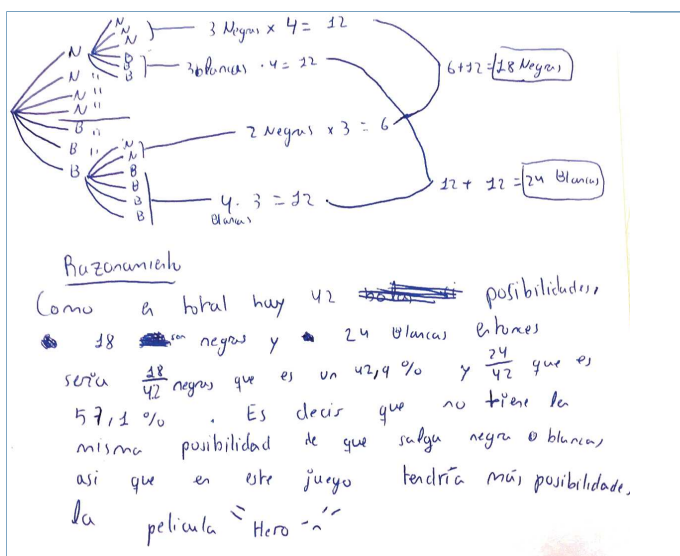 N
N
N
3 Negras x 4 = 12
N
B
B
3 blancas . 4 = 12
6+12 = 18 Negras
N "
N "
N "
B "
B "
N
N
2 Negras x 3 = 6
B
B
B
B
B
4 . 3 = 12
Blancas
12 + 12 = 24 Blancas
Razonamiento
Como en total hay 42 posibilidades,
18 son negras y 24 blancas entonces
seria 18/42 negras que es un 42,9 % y 24/42 que es
57,1 % . Es decir que no tiene la
misma posibilidad de que salga negra o blancas,
asi que en este juego tendría más posibilidades,
la pelicula "Hero"